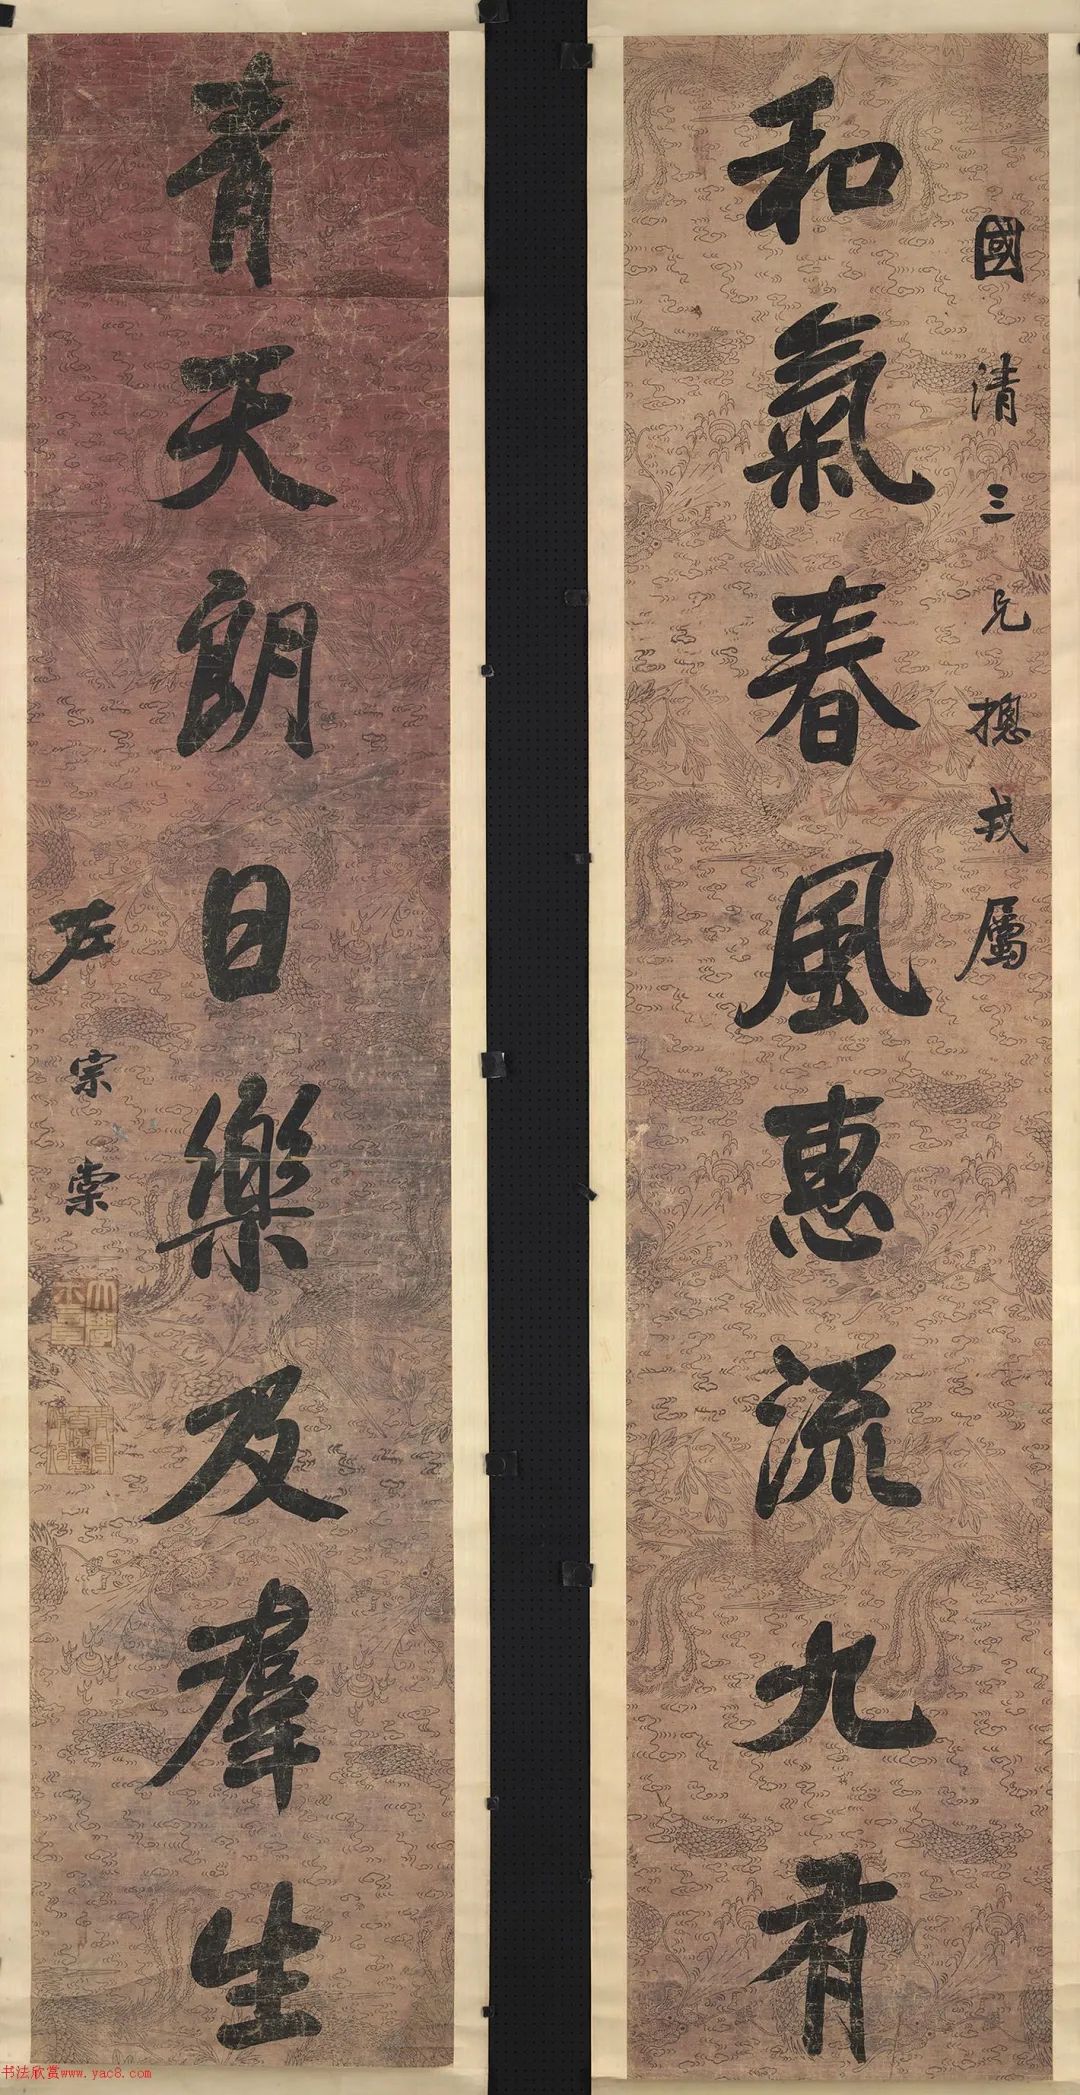 國清三兄摠戎屬
和氣春風惠流九有
青天朗日樂及羣生
左宗棠
书法欣赏www.yac8.com